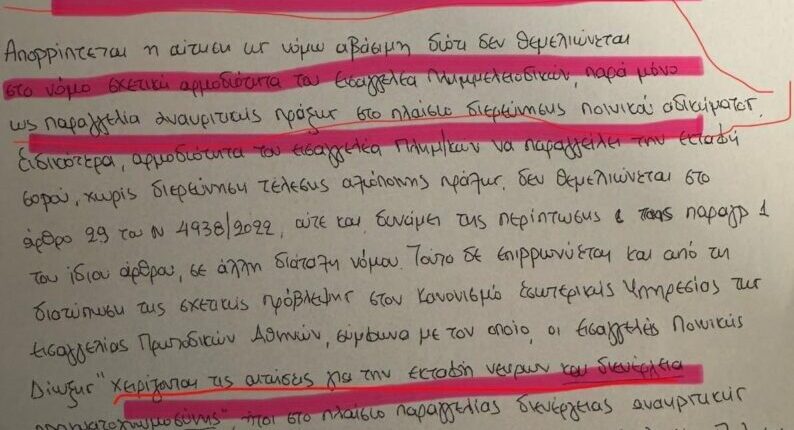 Απορρίπτεται η αίτηση ως νόμω αβάσιμη διότι δεν θεμελιώνεται
στο νόμο σχετική αρμοδιότητα του Εισαγγελέα Πλημμελειοδικών, παρά μόνο
ως παραγγελία ανακριτικής πράξης στο πλαίσιο διερεύνησης ποινικού αδικήματος.
Ειδικότερα, αρμοδιότητα του εισαγγελέα Πλημ/κών να παραγγείλει την εκταφή
σορού, χωρίς διερεύνηση τέλεσης αξιόποινης πράξης, δεν θεμελιώνεται στο
άρθρο 29 του Ν 4938/2022, ούτε και δυνάμει της περίπτωσης της παραγρ 1
του ίδιου άρθρου, σε άλλη διάταξη νόμου. Τούτο δε επιρρωνύεται και από τη
διατύπωση της σχετικής πρόβλεψης στον Κανονισμό Εσωτερικής Υπηρεσίας της
Εισαγγελίας Πρωτοδικών Αθηνών, σύμφωνα με τον οποίο, οι Εισαγγελείς Ποινικής
Δίωξης "χειρίζονται τις αιτήσεις για την εκταφή νεκρών και διενέργεια
πραγματογνωμοσύνης", ήτοι στο πλαίσιο παραγγελίας διενέργειας ανακριτικής